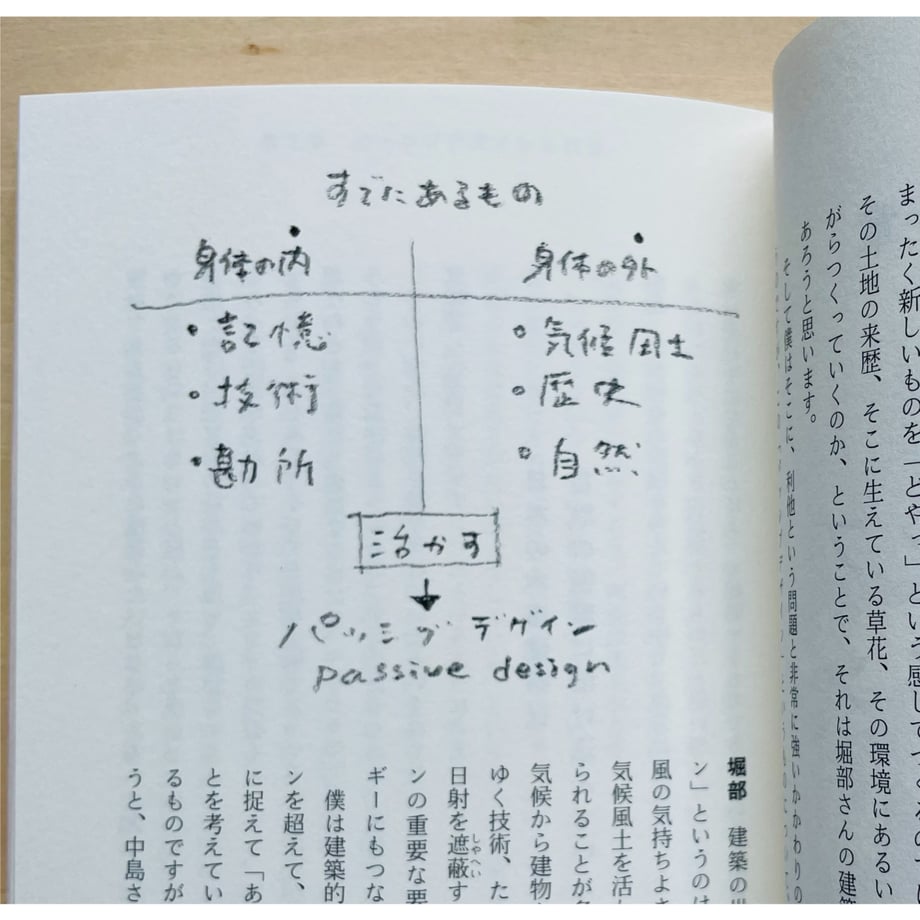 まったく新しいものを「どやっ」という感じでつ
その土地の来歴、そこに生えている草花、その環境にあるい
がらつくっていくのか、ということで、それは堀部さんの建築
あろうと思います。
そして僕はそこに、利他という問題と非常に強いかかわりの
すでにあるもの
身体の内
身体の外
・記憶
・気候風土
・技術
・歴史
・勘所
・自然
活かす
パッシブデザイン
passive design
堀部 建築の
ン」というのは
風の気持ちよさ
気候風土を活
られることが
気候から建物
ゆく技術、た
日射を遮蔽す
しゃへい
ンの重要な要
ギーにもつな
僕は建築的
ンを超えて、
に捉えて「あ
とを考えてい
るものですが
うと、中島さ